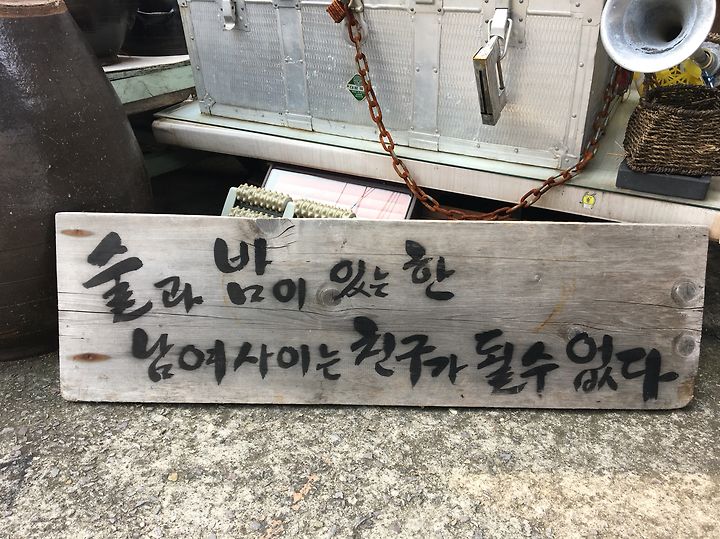 술과 밤이 있는 한
남여사이는 친구가 될수 없다